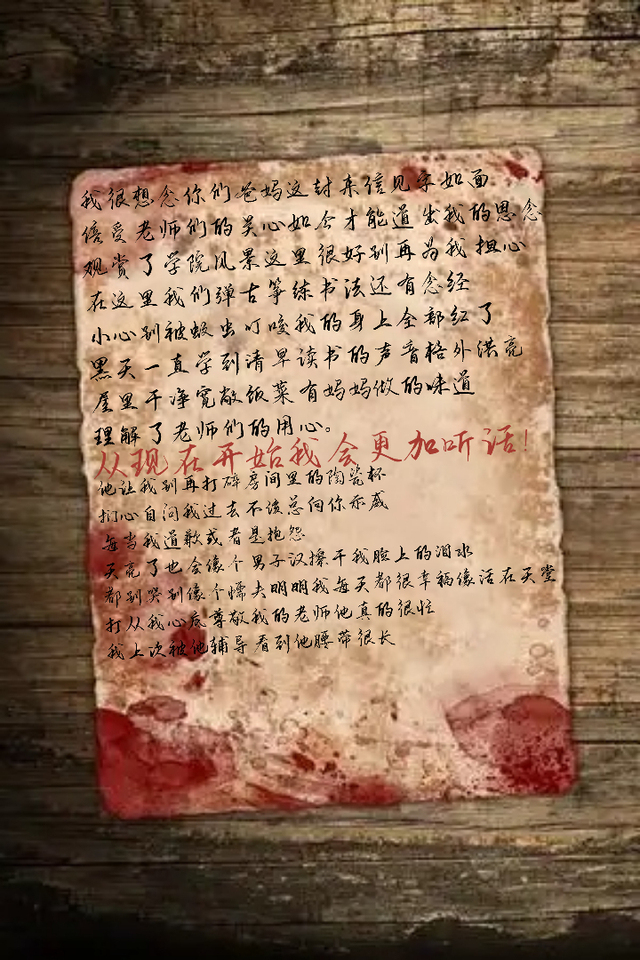 我很想念你们爸妈这封来信见字如面
倍受老师们的关心如今才能道出我的思念
观赏了学院风景这里很好别再为我担心
在这里我们弹古筝练书法还有念经
小心别被蚊虫叮咬我的身上全部红了
黑天一直学到清早读书的声音格外洪亮
屋里干净宽敞饭菜有妈妈做的味道
理解了老师们的用心。
从现在开始我会更加听话!
他让我别再打碎房间里的陶瓷杯
扪心自问我过去不该总向你示威
每当我道歉或者是抱怨
天亮了也会像个男子汉擦干我脸上的泪水
都别哭别像个懦夫明明我每天都很幸福像活在天堂
打从我心底尊敬我的老师他真的很忙
我上次被他辅导看到他腰带很长